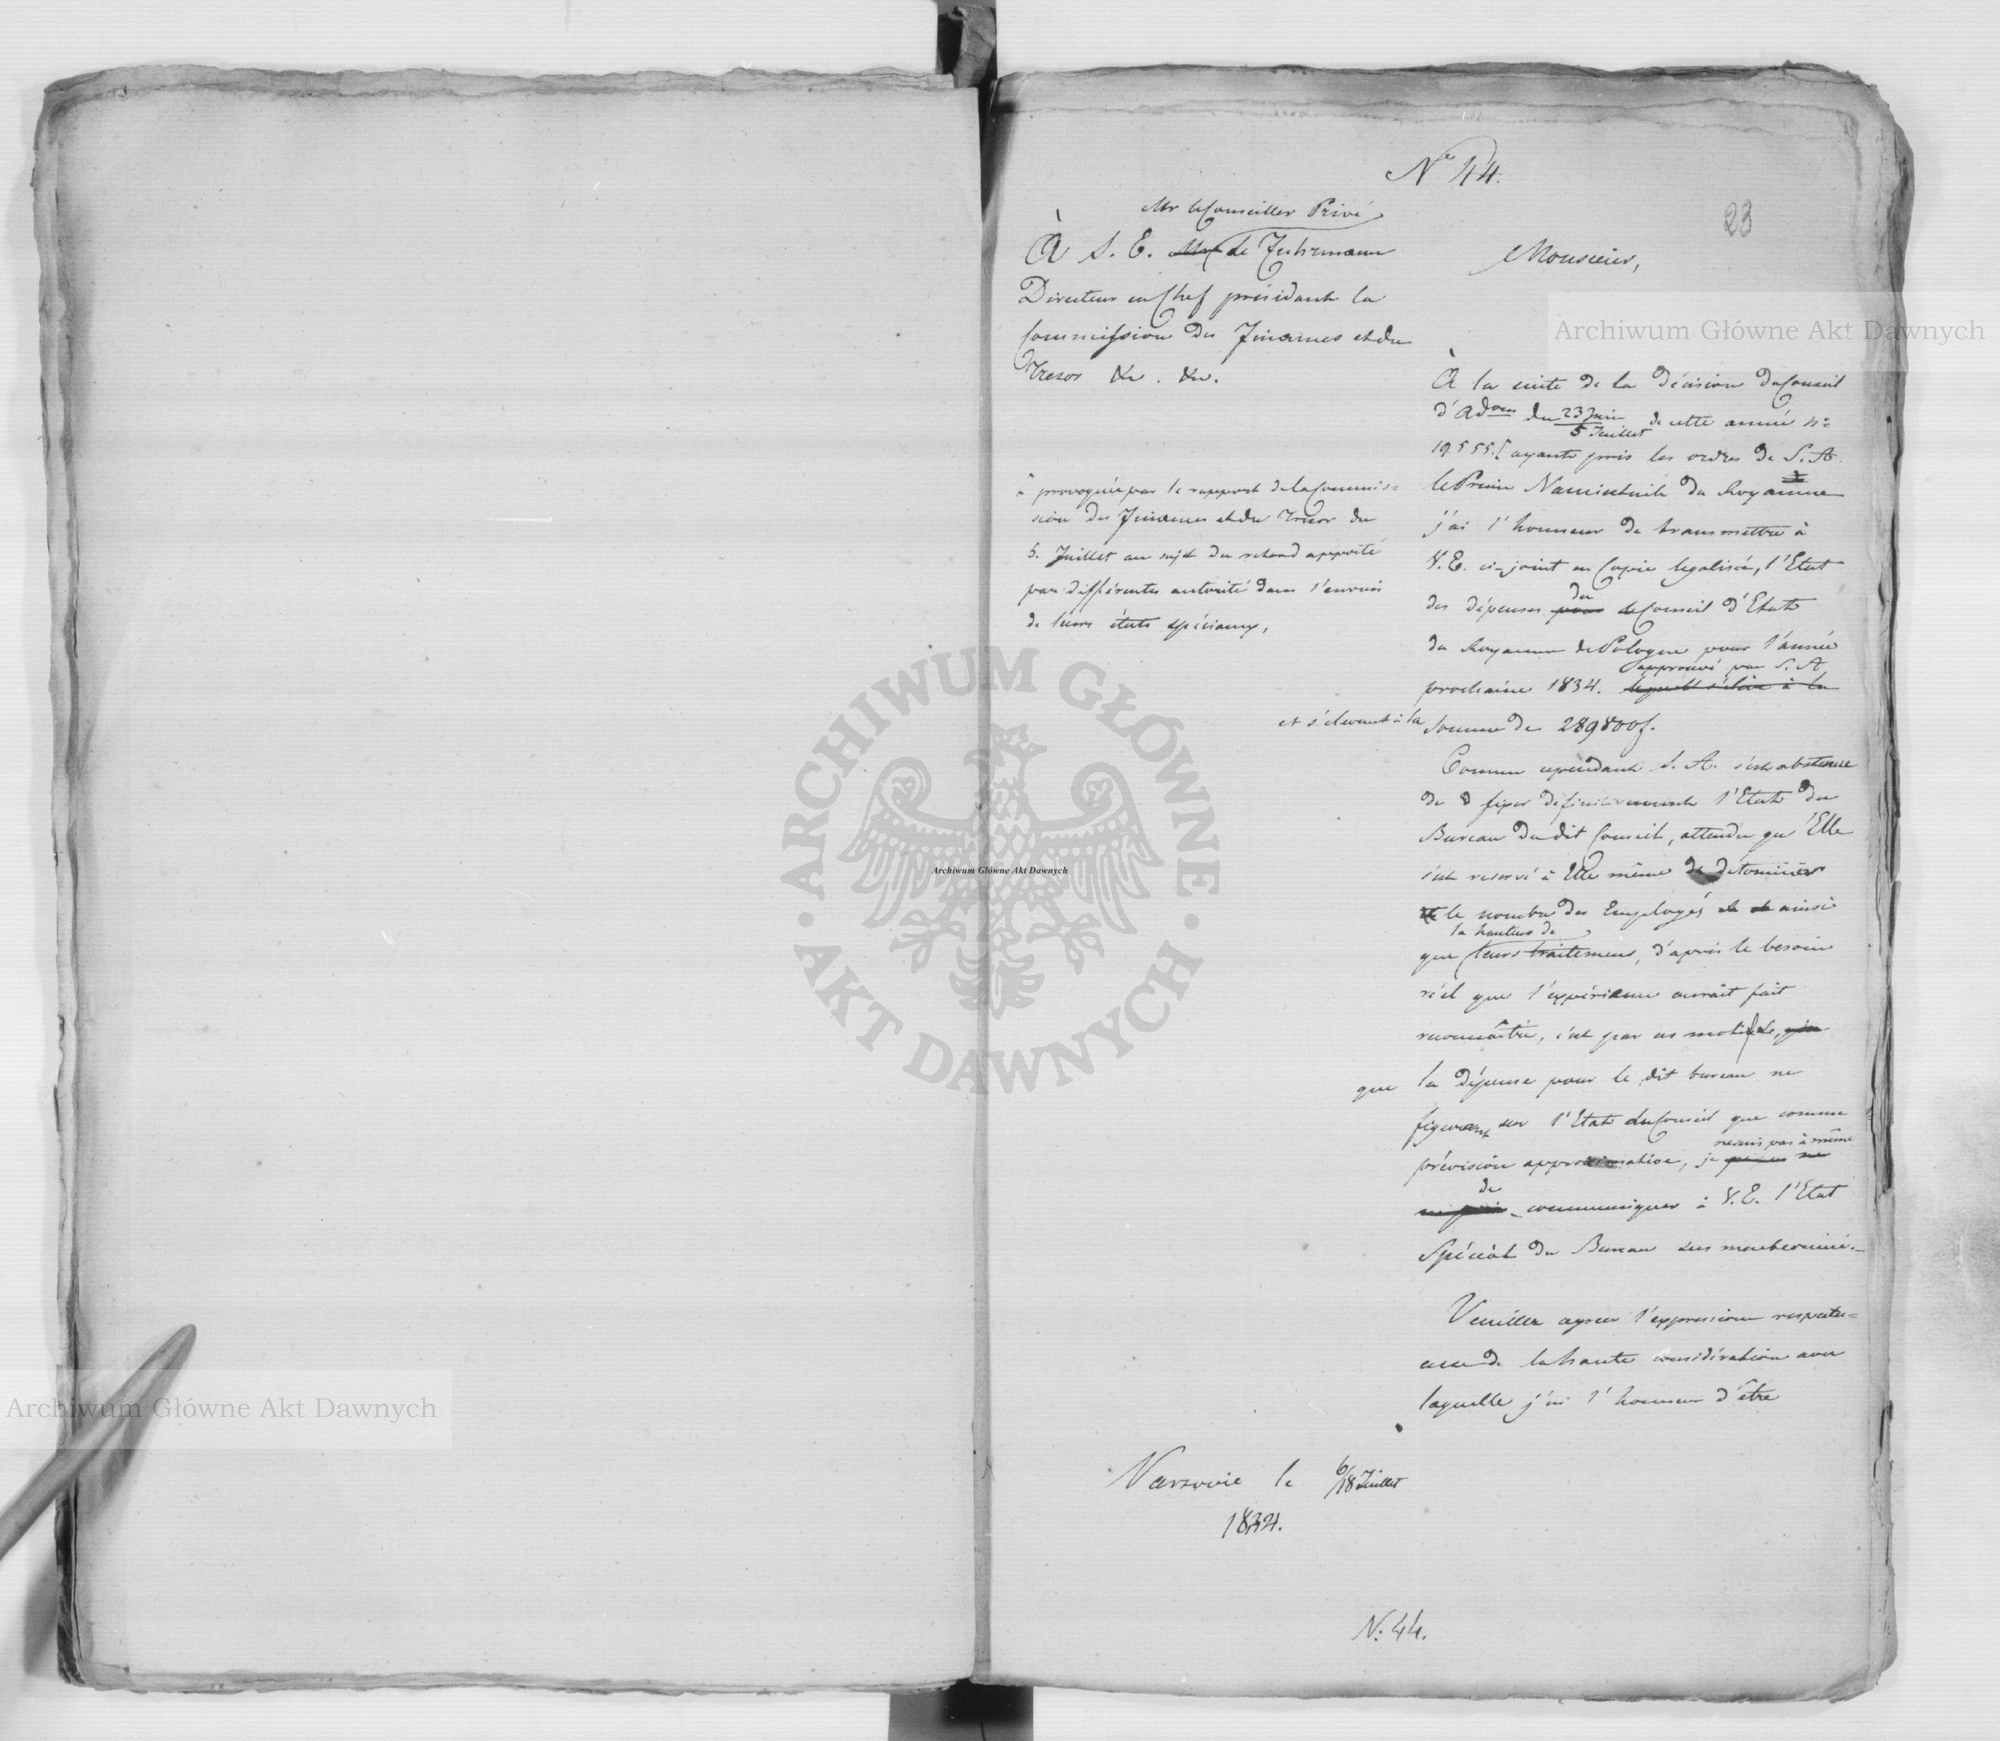 Nº 44.
23
Mr le Conseiller Privé
À S. E. Mr de Fuhrmann
Directeur en Chef présidant la
Commission des Finances et du
Tresor &c. &c.
Monsieur,
À la suite de la décision du Conseil
d'Adon du 23 Juin / 5 Juillet de cette année nº
19555. ayant pris les ordres de S. A.
le Prince Namiestnik du Royaume
j'ai l'honneur de transmettre à
V. E. ci-joint en Copie legalisée, l'Etat
du
des dépenses pour le Conseil d'Etat
du Royaume de Pologne pour l'année
approuvé par S. A.
prochaine 1834. lequel s'élève à la
et s'élevant à la
somme de 289800 f.
à provoquée par le rapport de la Commis=
sion des Finances et du Trésor du
5. Juillet au sujet du retard apporté
par différentes autorité dans l'envoi
de leurs états spéciaux,
Comme cependant S. A. s'est abstenue
de fixer definitivement l'Etat du
Bureau du dit Conseil, attendu qu'Elle
s'est reservé à Elle même de determiner
le nombre des Employés et de ainsi
la hauteur de
que leurs traitemens, d'après le besoin
réel que l'expérience aurait fait
reconnaître, c'est par ces motifs,
que la dépense pour le dit bureau ne
figurant sur l'Etat du Conseil que comme
ne suis pas à même
prévision approximative, je
de
communiquer à V. E. l'Etat
Spécial du Bureau sus mentionné.
Veuillez agréer l'expression respectu=
euse de la haute considération avec
laquelle j'ai l'honneur d'être
Varsovie le 6/18 Juillet
1834.
N: 44.
Archiwum Główne Akt Dawnych
Archiwum Główne Akt Dawnych
Archiwum Główne Akt Dawnych
ARCHIWUM GŁÓWNE · AKT DAWNYCH · A